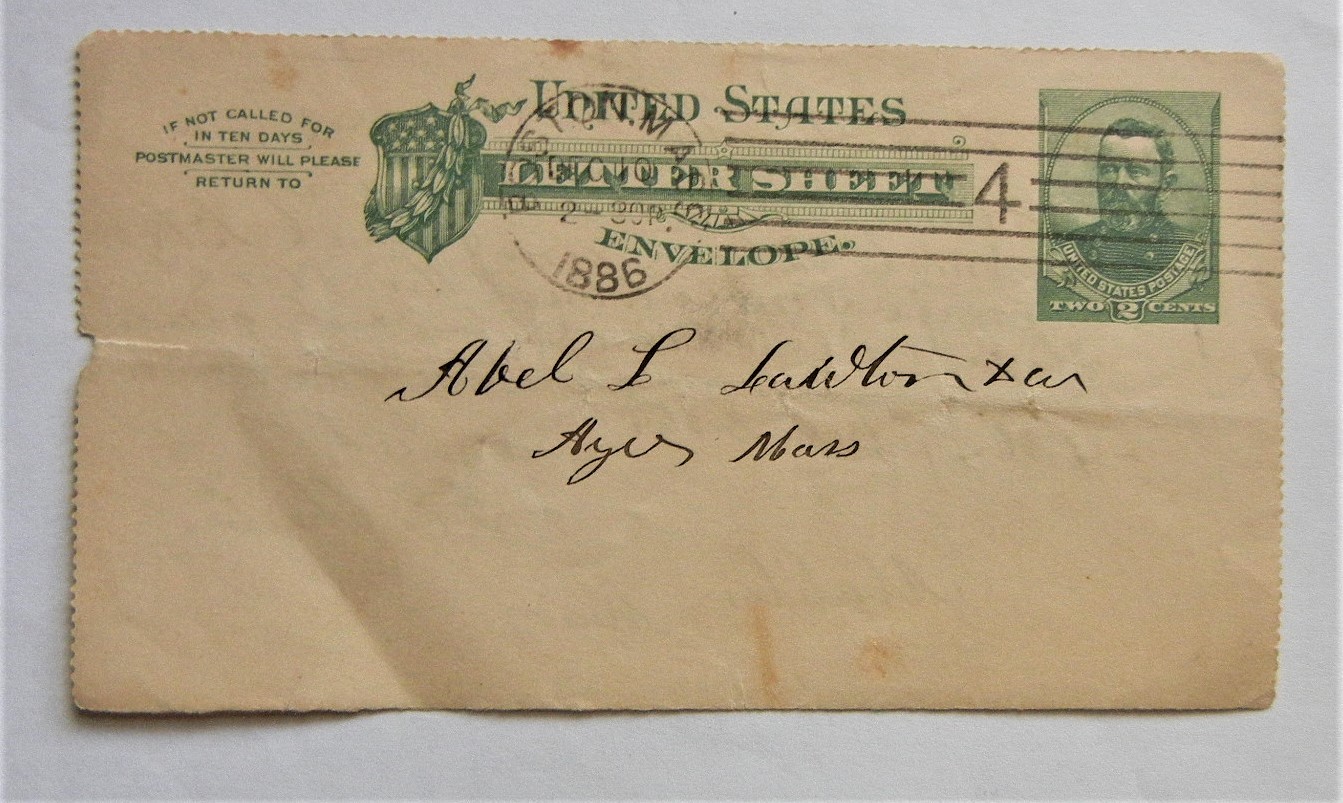 IF NOT CALLED FOR
IN TEN DAYS
POSTMASTER WILL PLEASE
RETURN TO
UNITED STATES
LETTER SHEET
ENVELOPE.
BOSTON MASS
DEC 10
2 30P
1886
4
UNITED STATES POSTAGE
TWO 2 CENTS
Abel L Lawton
Ayer Mass